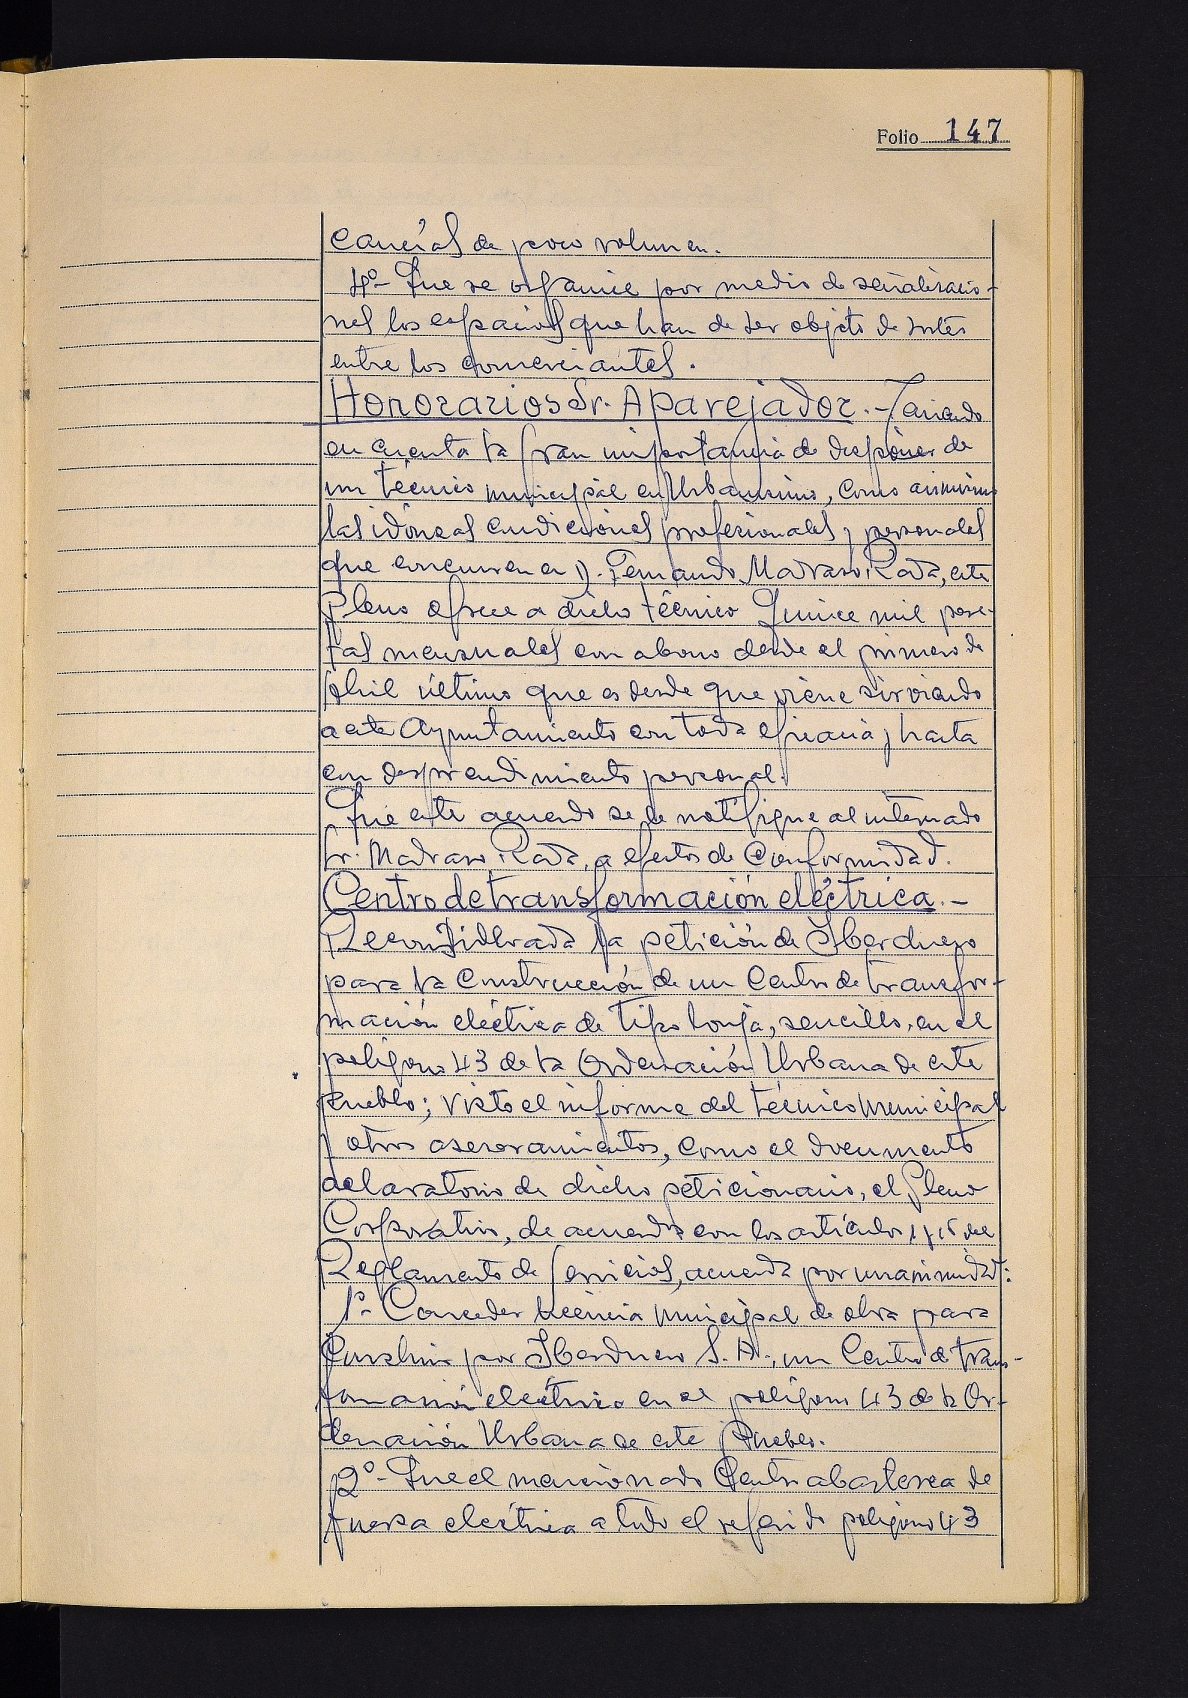 Folio 147
cancías de poco volumen.
4º- Que se organice por medio de señalizacio-
nes los espacios que han de ser objeto de sorteo
entre los comerciantes.
Honorarios Sr. Aparejador.- Teniendo
en cuenta la gran importancia de disponer de
un técnico municipal en Urbanismo, como asimismo
las idóneas condiciones profesionales y personales
que concurren en D. Fernando Madrazo Rada, este
Pleno ofrece a dicho técnico Quince mil pese-
tas mensuales con abono desde el primero de
Abril último que es desde que viene sirviendo
a este Ayuntamiento con toda eficacia y hasta
con desprendimiento personal.
Que este acuerdo se le notifique al interesado
Sr. Madrazo Rada, a efectos de Conformidad.
Centro de transformación eléctrica.-
Reconsiderada la petición de Iberduero
para la Construcción de un Centro de transfor-
mación eléctrica de tipo lonja, sencillo, en el
polígono 43 de la Ordenación Urbana de este
Pueblo; visto el informe del técnico Municipal
y otros asesoramientos, como el documento
aclaratorio de dicho peticionario, el Pleno
Corporativo, de acuerdo con los artículos del
Reglamento de Servicios, acuerda por unanimidad:
1º- Conceder licencia Municipal de obra para
por Iberduero S. A., un Centro de trans-
formación eléctrica en el polígono 43 de la Or-
denación Urbana de este Pueblo.
2º- Que el mencionado Centro abastezca de
fuerza eléctrica a todo el referido polígono 43